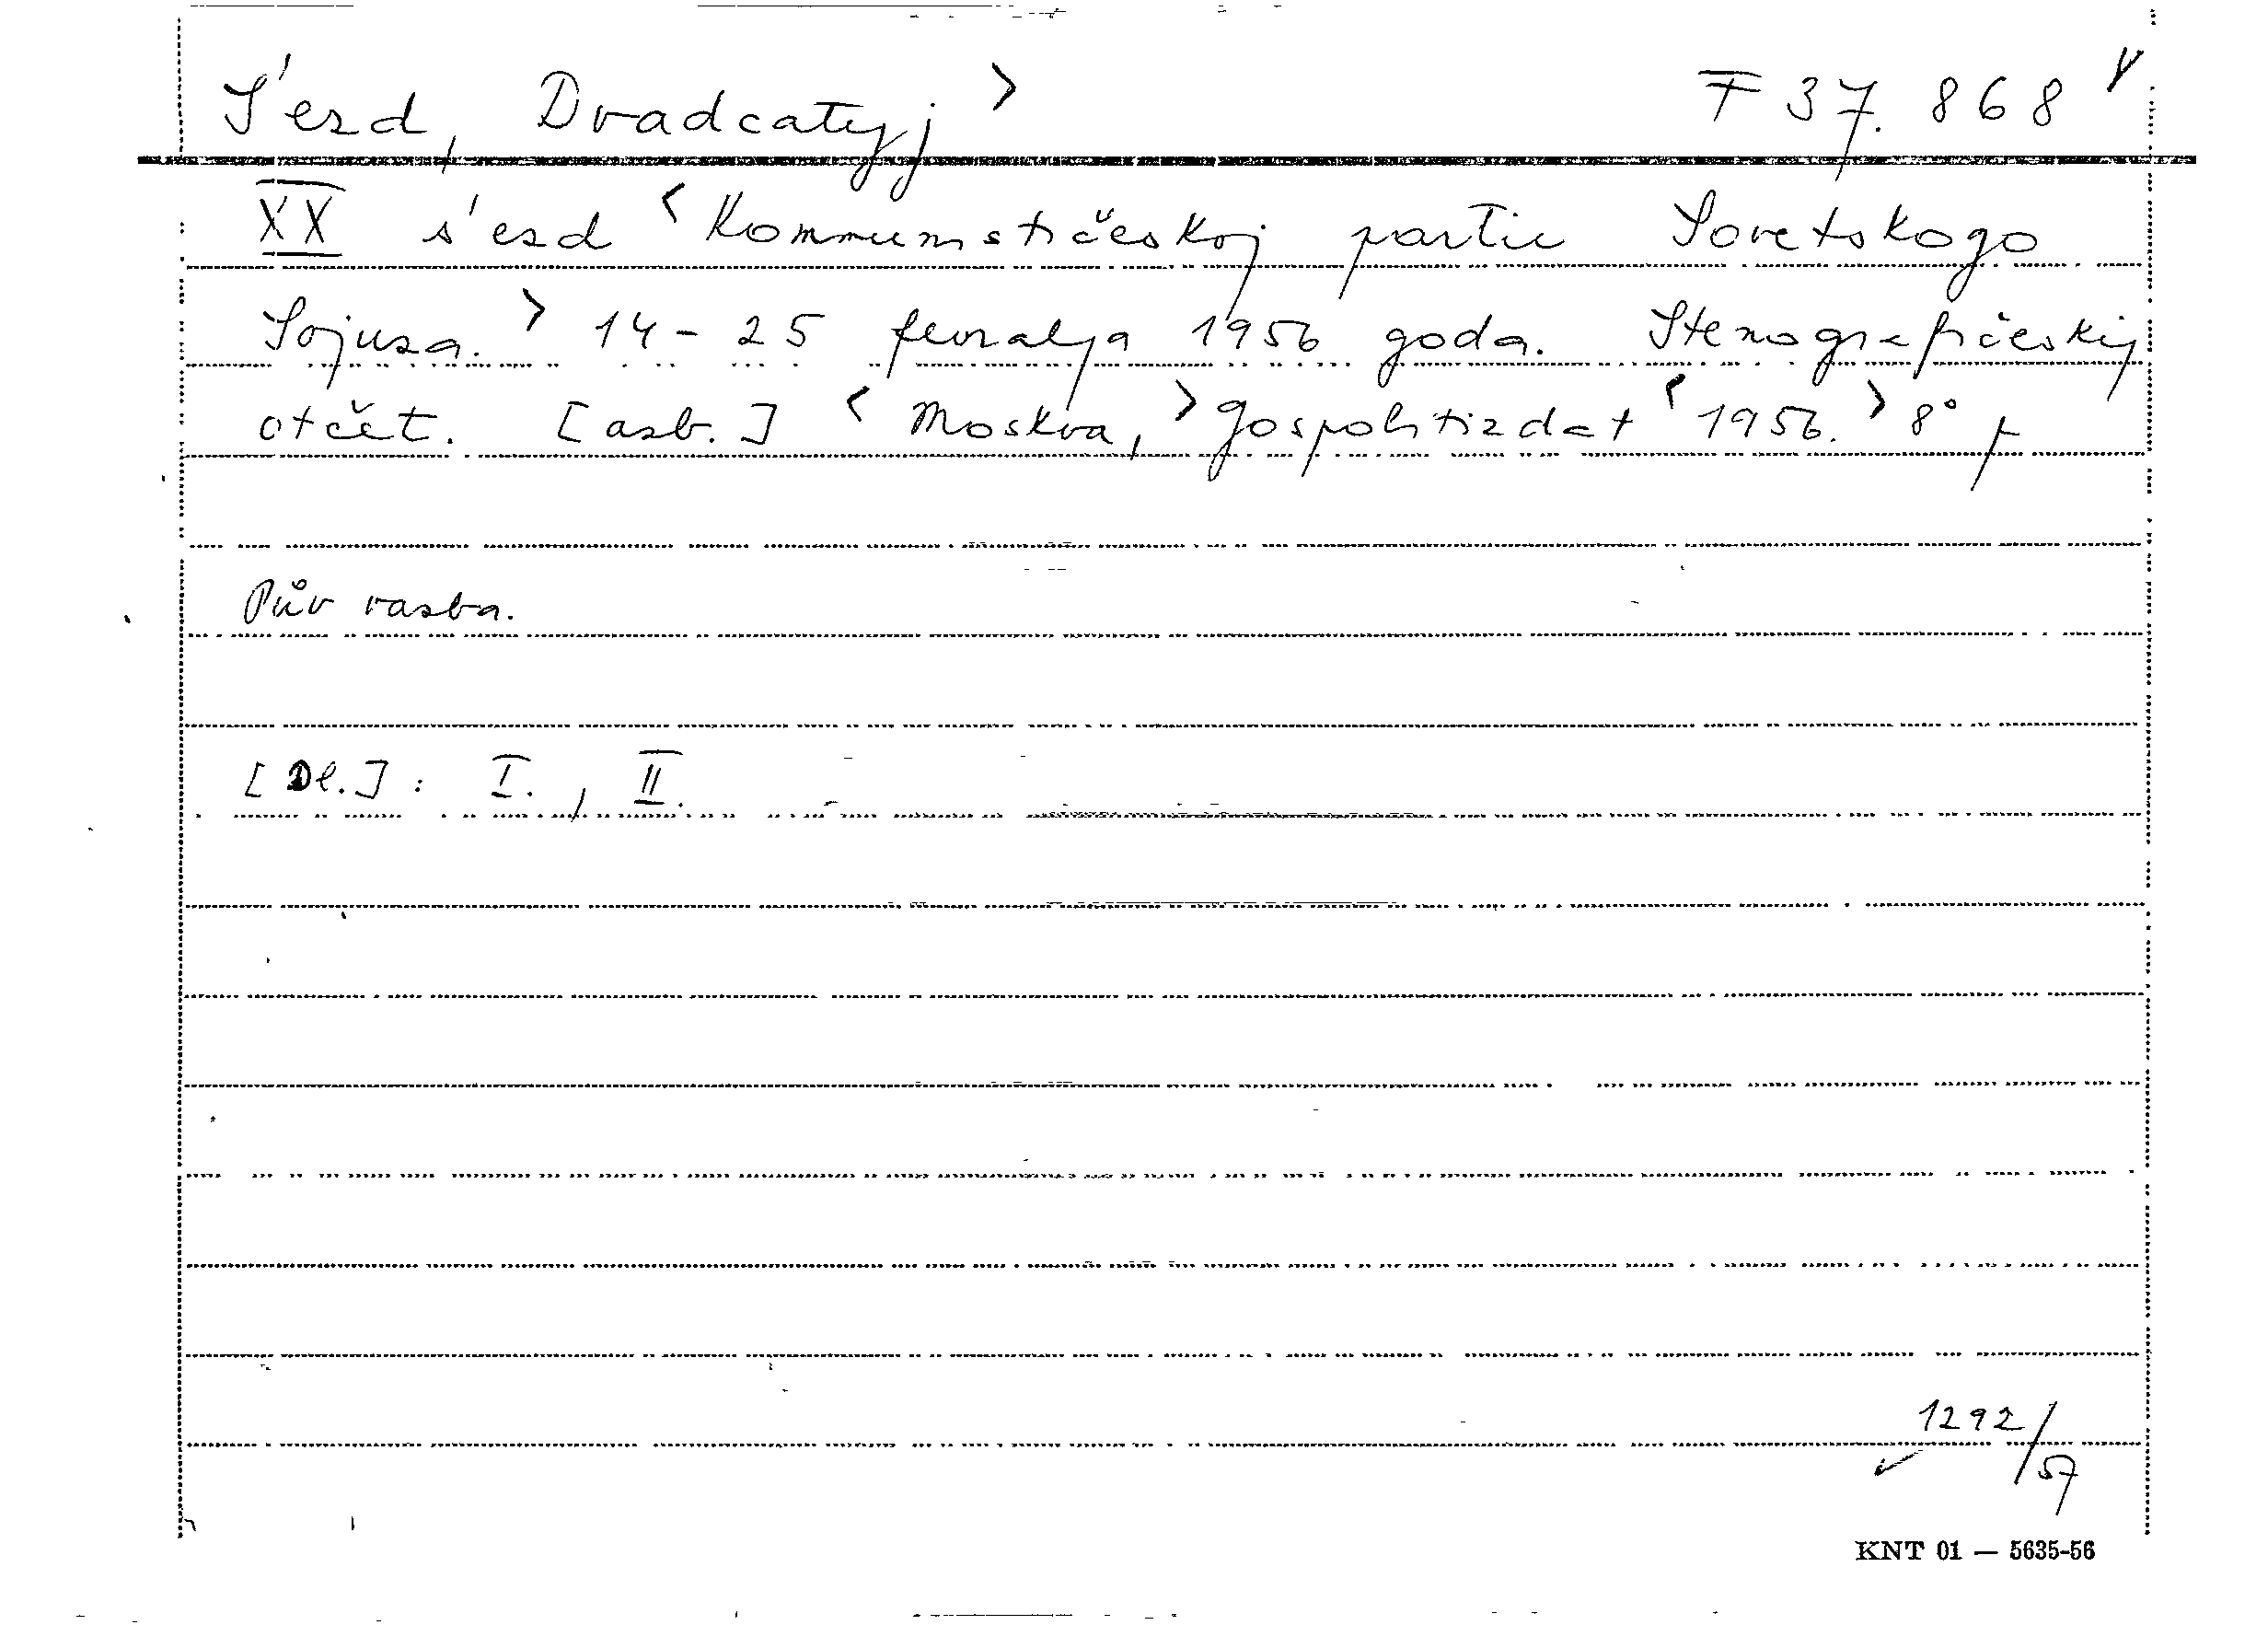 S'ezd, Dvadcatyj > F 37.868
XX s'ezd < Kommunističeskoj partii Sovetskogo
Sojuza. > 14-25 fevralja 1956 goda. Stenografičeskij
otčět. [azb.] < Moskva, > Gospolitizdat < 1956. > 8°
Pův vazba.
[Dl.]: I., II.
1292/57
KNT 01 — 5635-56